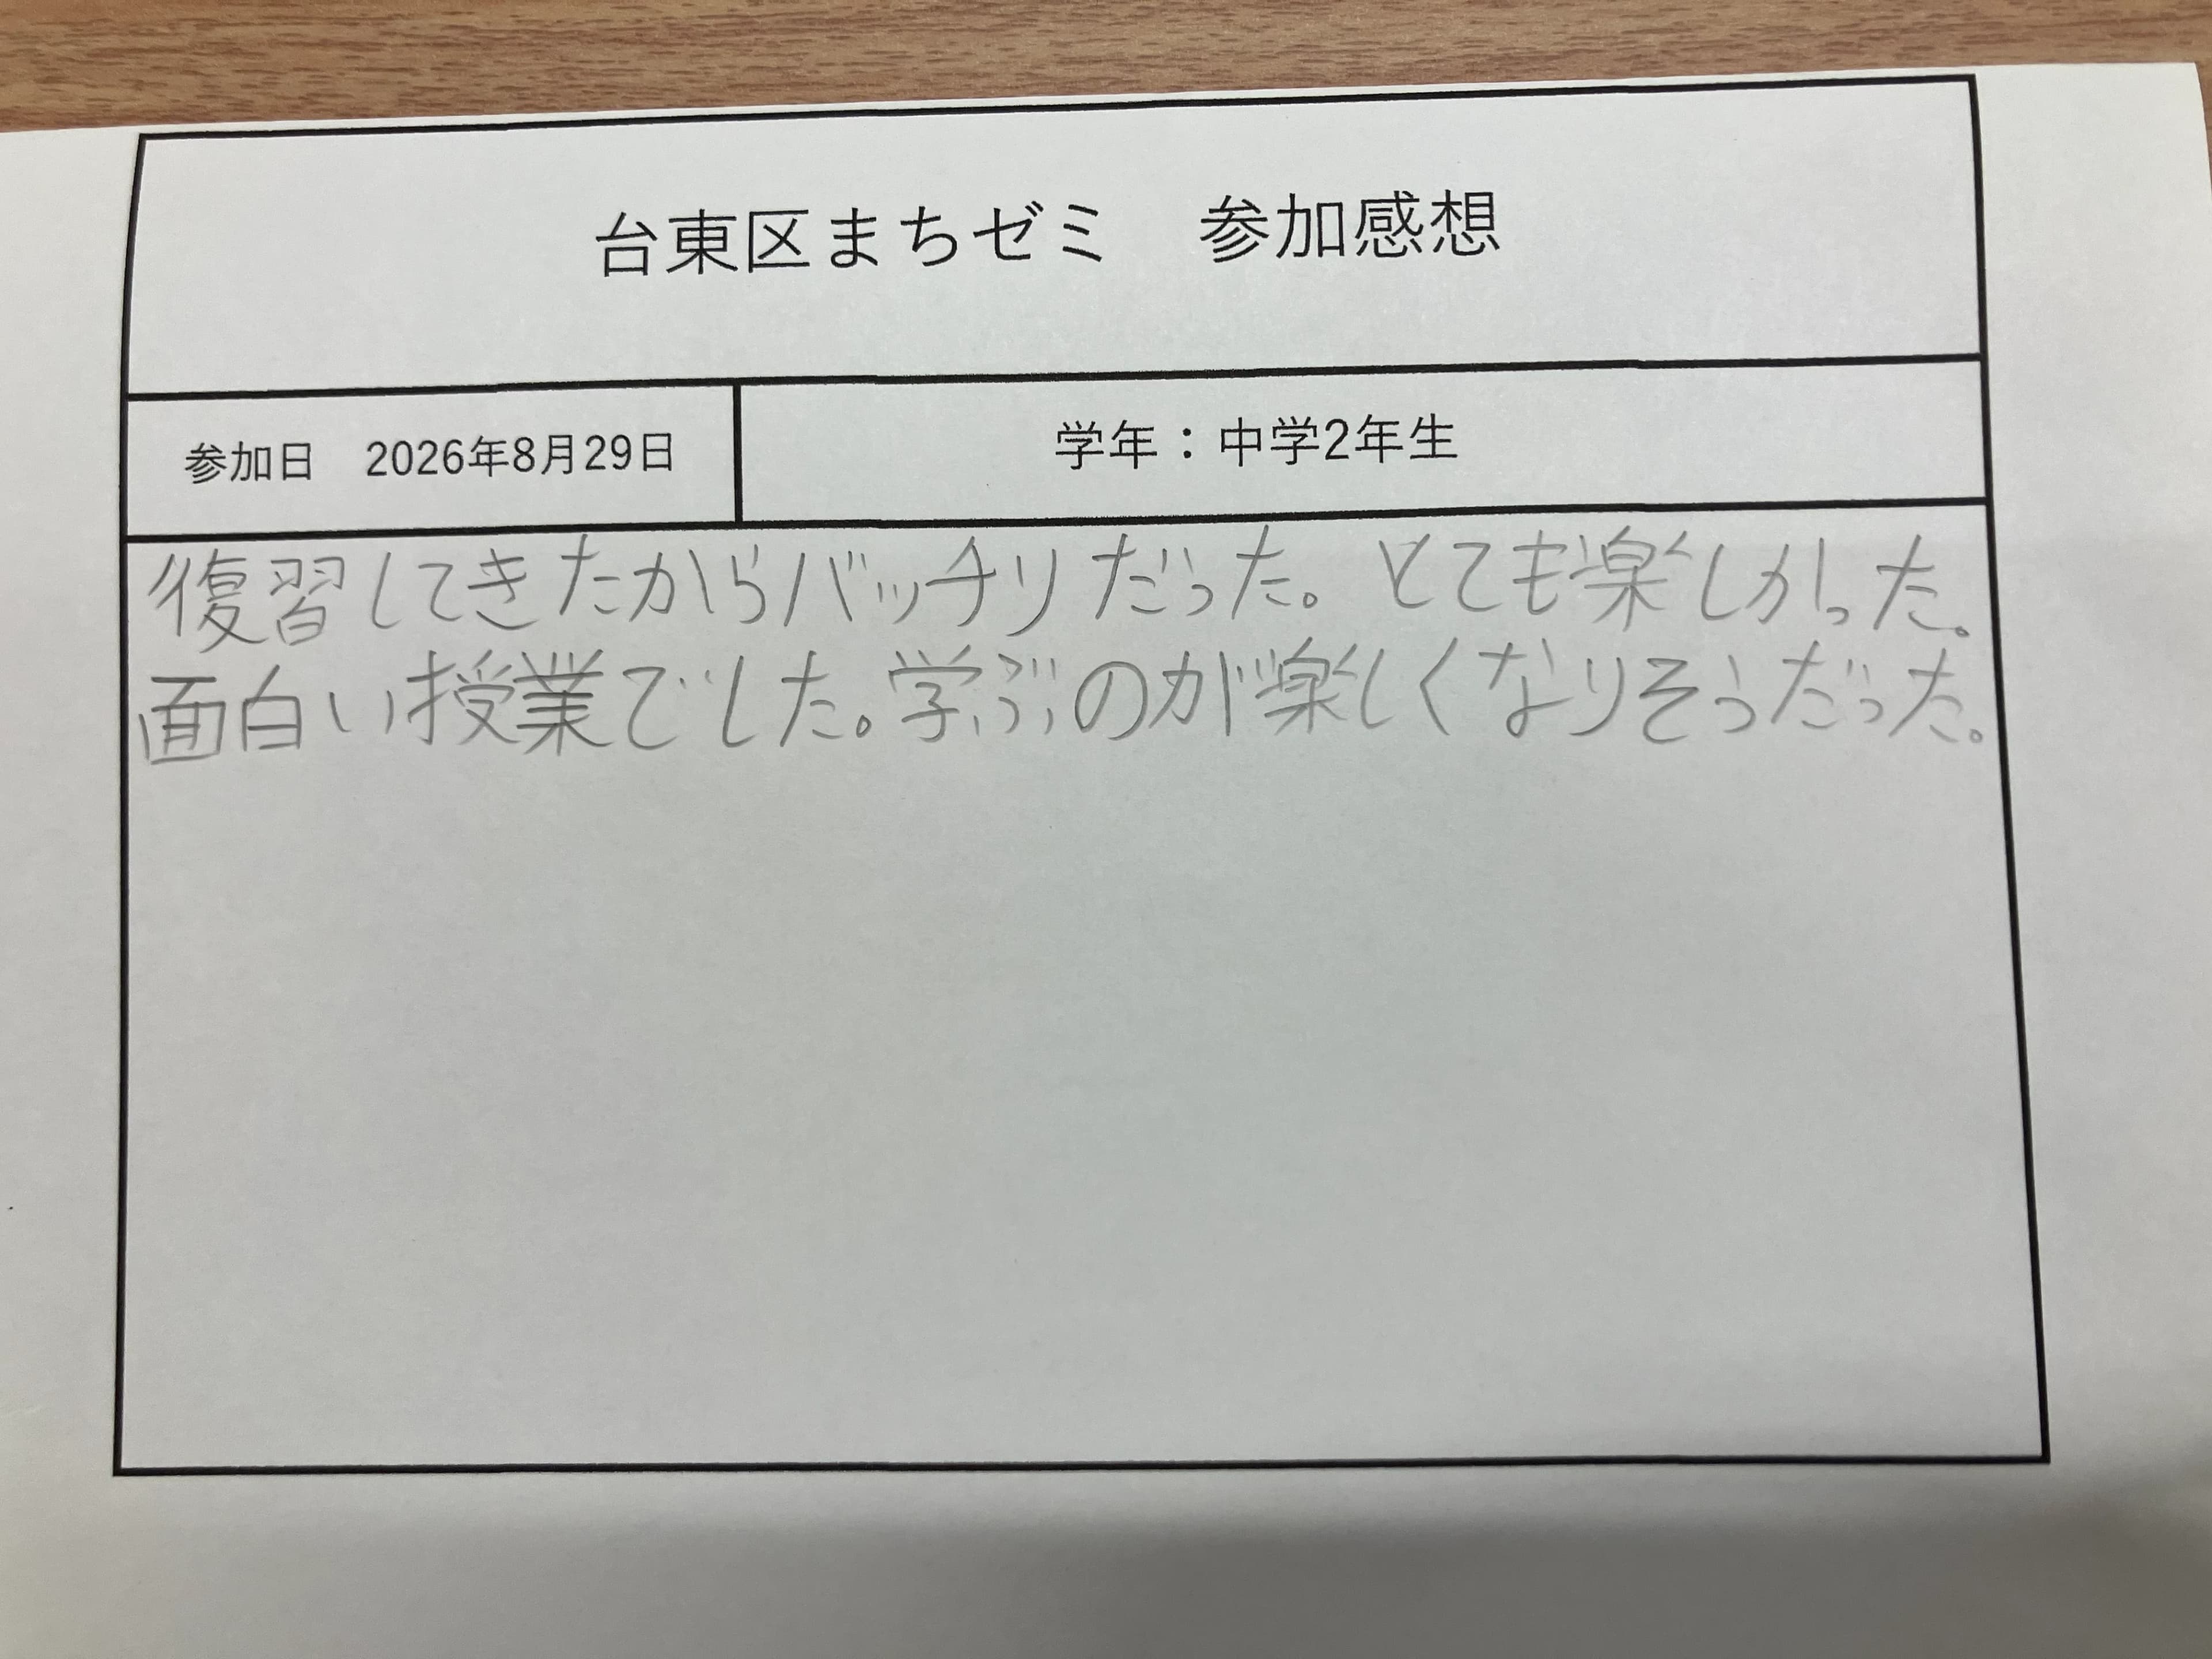 台東区まちゼミ　参加感想
参加日　2026年8月29日
学年：中学2年生
復習してきたからバッチリだった。とても楽しかった。
面白い授業でした。学ぶのが楽しくなりそうだった。